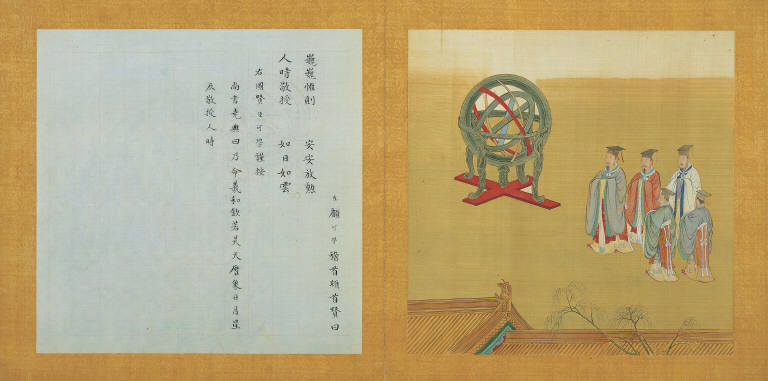 臣顧可學稽首頓首贊曰
巍巍惟則 安安放勳
人時敬授 如日如雲
右圖贊臣可學謹按
尚書堯典曰乃命羲和欽若昊天曆象日月星
辰敬授人時